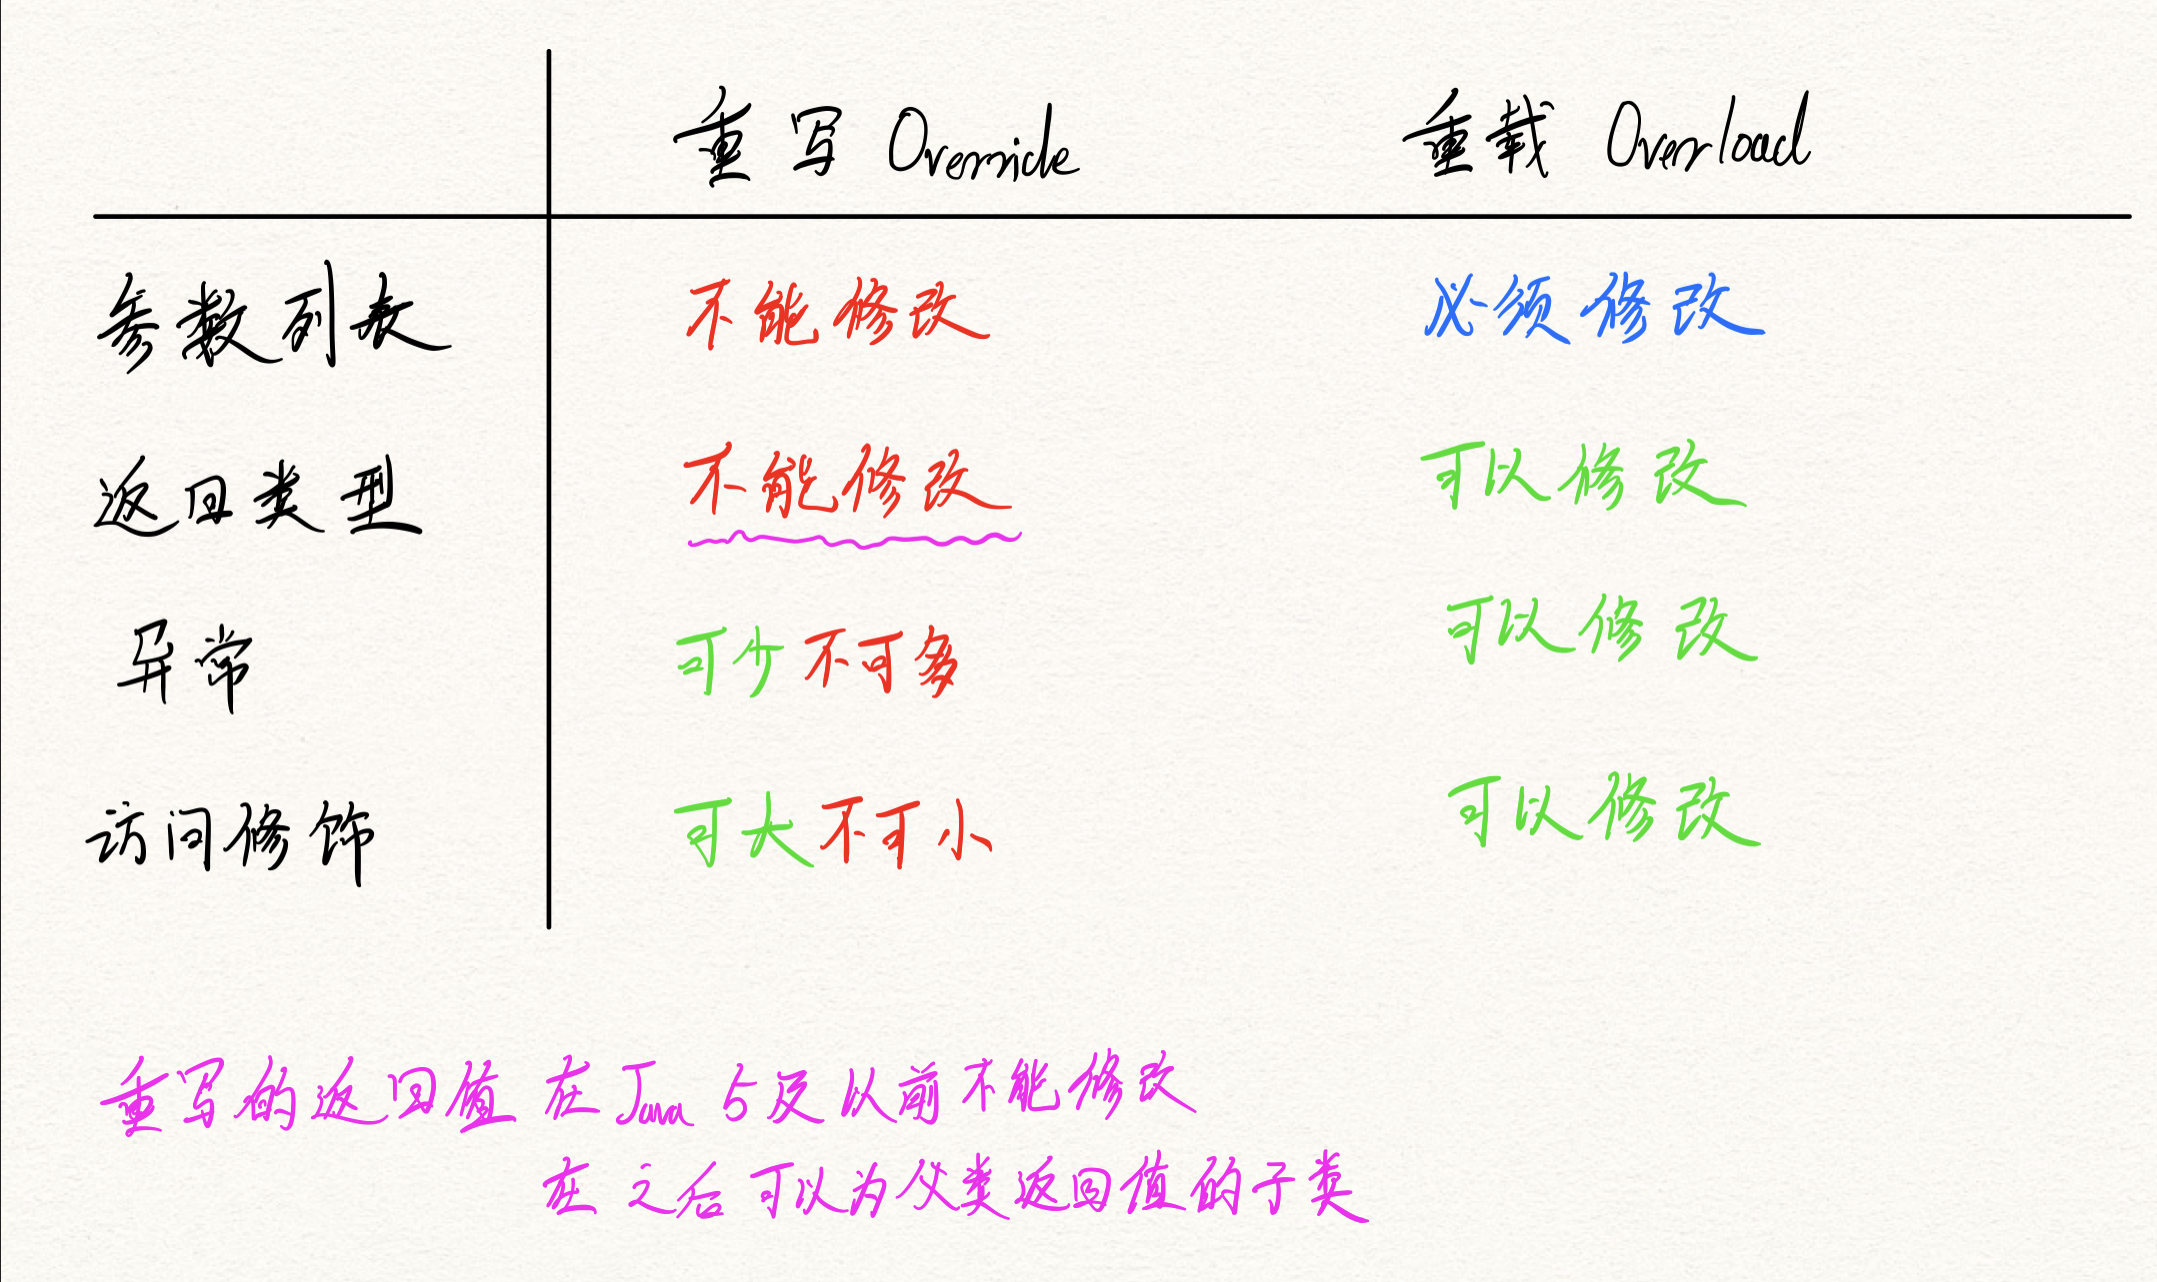 重写 Override 重载 Overload
参数列表 不能修改 必须修改
返回类型 不能修改 可以修改
异常 可少不可多 可以修改
访问修饰 可大不可小 可以修改
重写的返回值 在 Java 5 及以前不能修改
在之后可以为父类返回值的子类